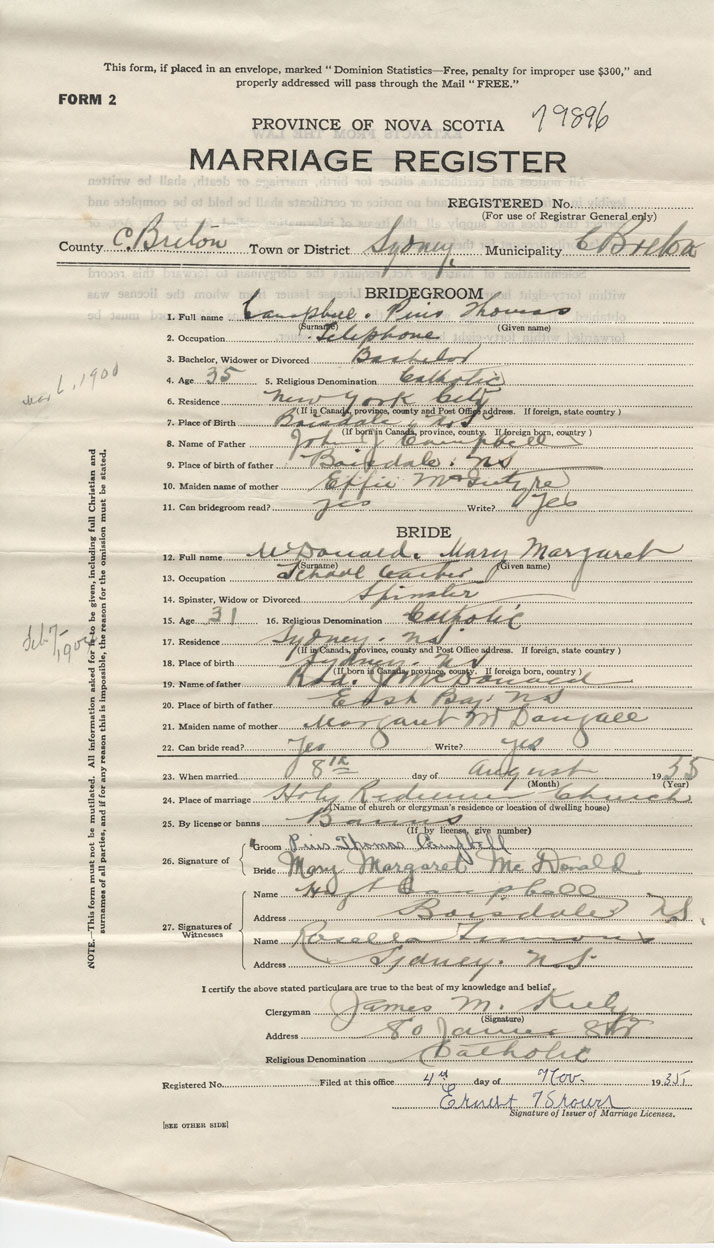 This form, if placed in an envelope, marked "Dominion Statistics—Free, penalty for improper use $300," and
properly addressed will pass through the Mail "FREE."
FORM 2
PROVINCE OF NOVA SCOTIA 79896
MARRIAGE REGISTER
REGISTERED No.
(For use of Registrar General only)
County C. Breton Town or District Sydney Municipality C Breton
BRIDEGROOM
1. Full name Campbell. Pius Thomas
(Surname) (Given name)
2. Occupation Telephone
3. Bachelor, Widower or Divorced Bachelor
4. Age 35 5. Religious Denomination Catholic
6. Residence New York City
(If in Canada, province, county and Post Office address. If foreign, state country)
7. Place of Birth Boisdale. NS
(If born in Canada, province, county. If foreign born, country)
8. Name of Father John J Campbell
9. Place of birth of father Boisdale. NS
10. Maiden name of mother Effie McIntyre
11. Can bridegroom read? yes Write? Yes
1900
BRIDE
12. Full name McDonald. Mary Margaret
(Surname) (Given name)
13. Occupation School
14. Spinster, Widow or Divorced Spinster
15. Age 31 16. Religious Denomination Catholic
17. Residence Sydney. NS
(If in Canada, province, county and Post Office address. If foreign, state country)
18. Place of birth Sydney. NS
(If born in Canada, province, county. If foreign born, country)
19. Name of father Rod. J McDonald
20. Place of birth of father East Bay. NS
21. Maiden name of mother Margaret McDougall
22. Can bride read? Yes Write? yes
23. When married 8th day of August 1935
(Month) (Year)
24. Place of marriage Holy Redeemer Church
(Name of church or clergyman's residence or location of dwelling house)
25. By license or banns Banns
(If by license, give number)
26. Signature of
Groom Pius Thomas Campbell
Bride Mary Margaret McDonald
27. Signatures of Witnesses
Name Campbell
Address Boisdale NS.
Name Rosella
Address Sydney. NS.
NOTE.—This form must not be mutilated. All information asked for is to be given, including full Christian and
surnames of all parties, and if for any reason this is impossible, the reason for the omission must be stated.
I certify the above stated particulars are true to the best of my knowledge and belief.
Clergyman James M. Kiely
(Signature)
Address 80 James St
Religious Denomination Catholic
Registered No. Filed at this office 4th day of Nov. 1935.
Ernest
Signature of Issuer of Marriage Licenses.
[SEE OTHER SIDE]